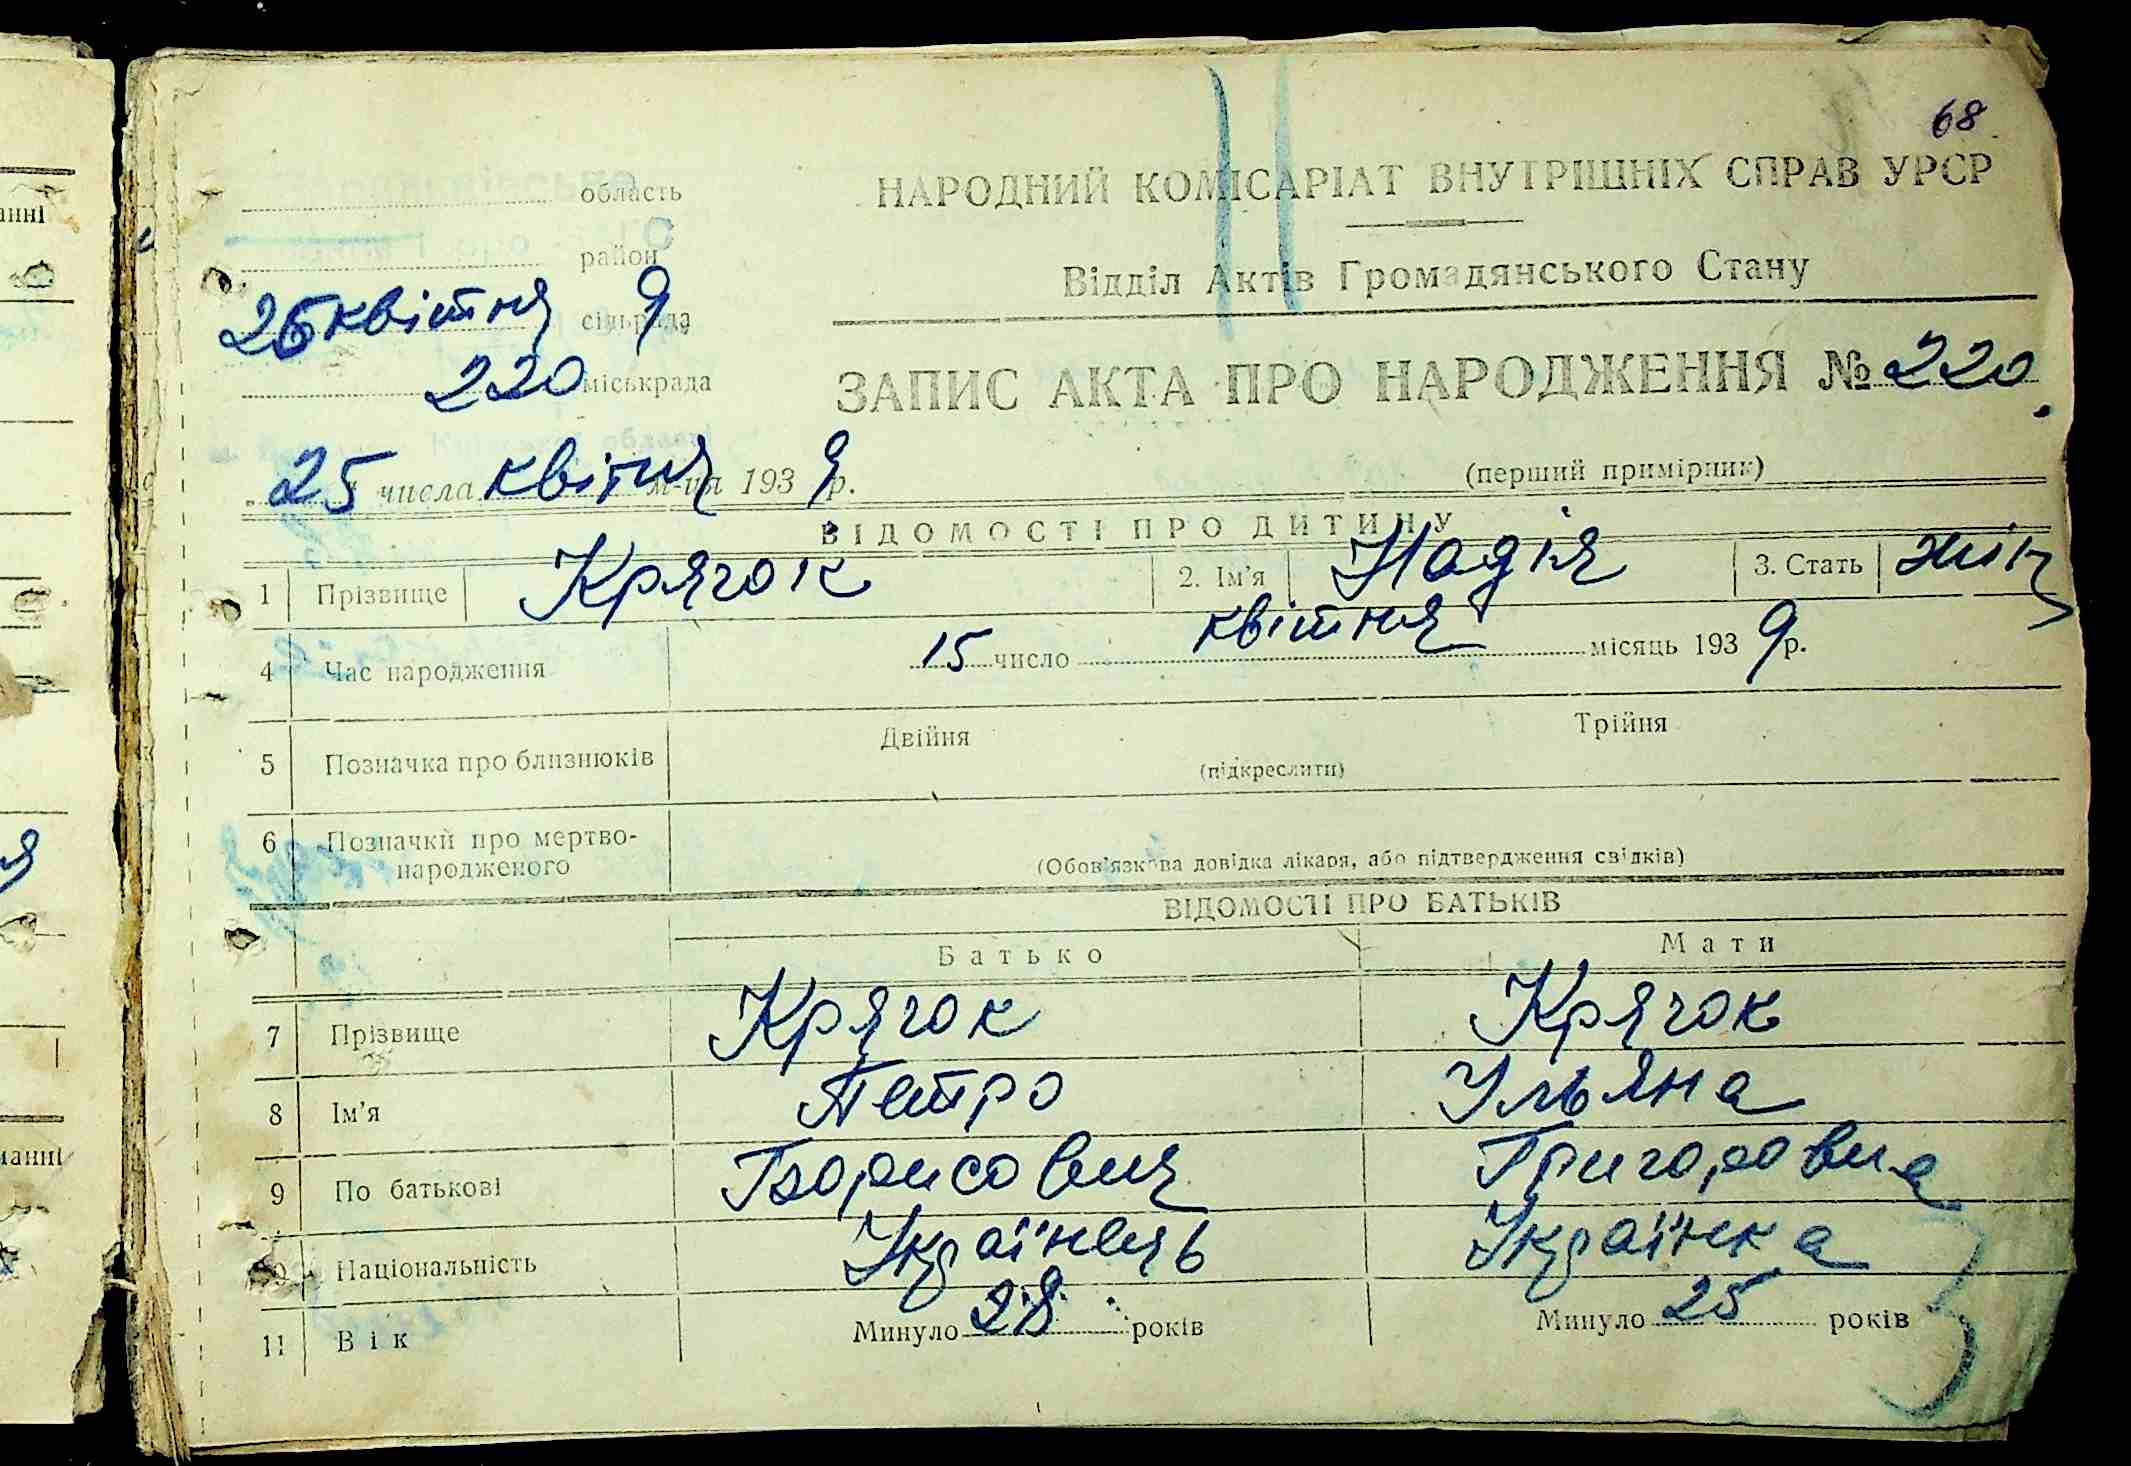 68
область
НАРОДНИЙ КОМІСАРІАТ ВНУТРІШНІХ СПРАВ УРСР
район
Відділ Актів Громадянського Стану
26 квітня 9 сільрада
220 міськрада
ЗАПИС АКТА ПРО НАРОДЖЕННЯ № 220.
25 числа квітня м-ця 193 9 р.
(перший примірник)
ВІДОМОСТІ ПРО ДИТИНУ
1 Прізвище Крячок 2. Ім'я Надія 3. Стать жін
4 Час народження 15 число квітня місяць 193 9 р.
5 Позначка про близнюків Двійня Трійня
(підкреслити)
6 Позначки про мертво-
народженого (Обов'язкова довідка лікаря, або підтвердження свідків)
ВІДОМОСТІ ПРО БАТЬКІВ
Батько Мати
7 Прізвище Крячок Крячок
8 Ім'я Петро Ульяна
9 По батькові Борисович Григоровна
10 Національність Українець Українка
11 Вік Минуло 28 років Минуло 25 років